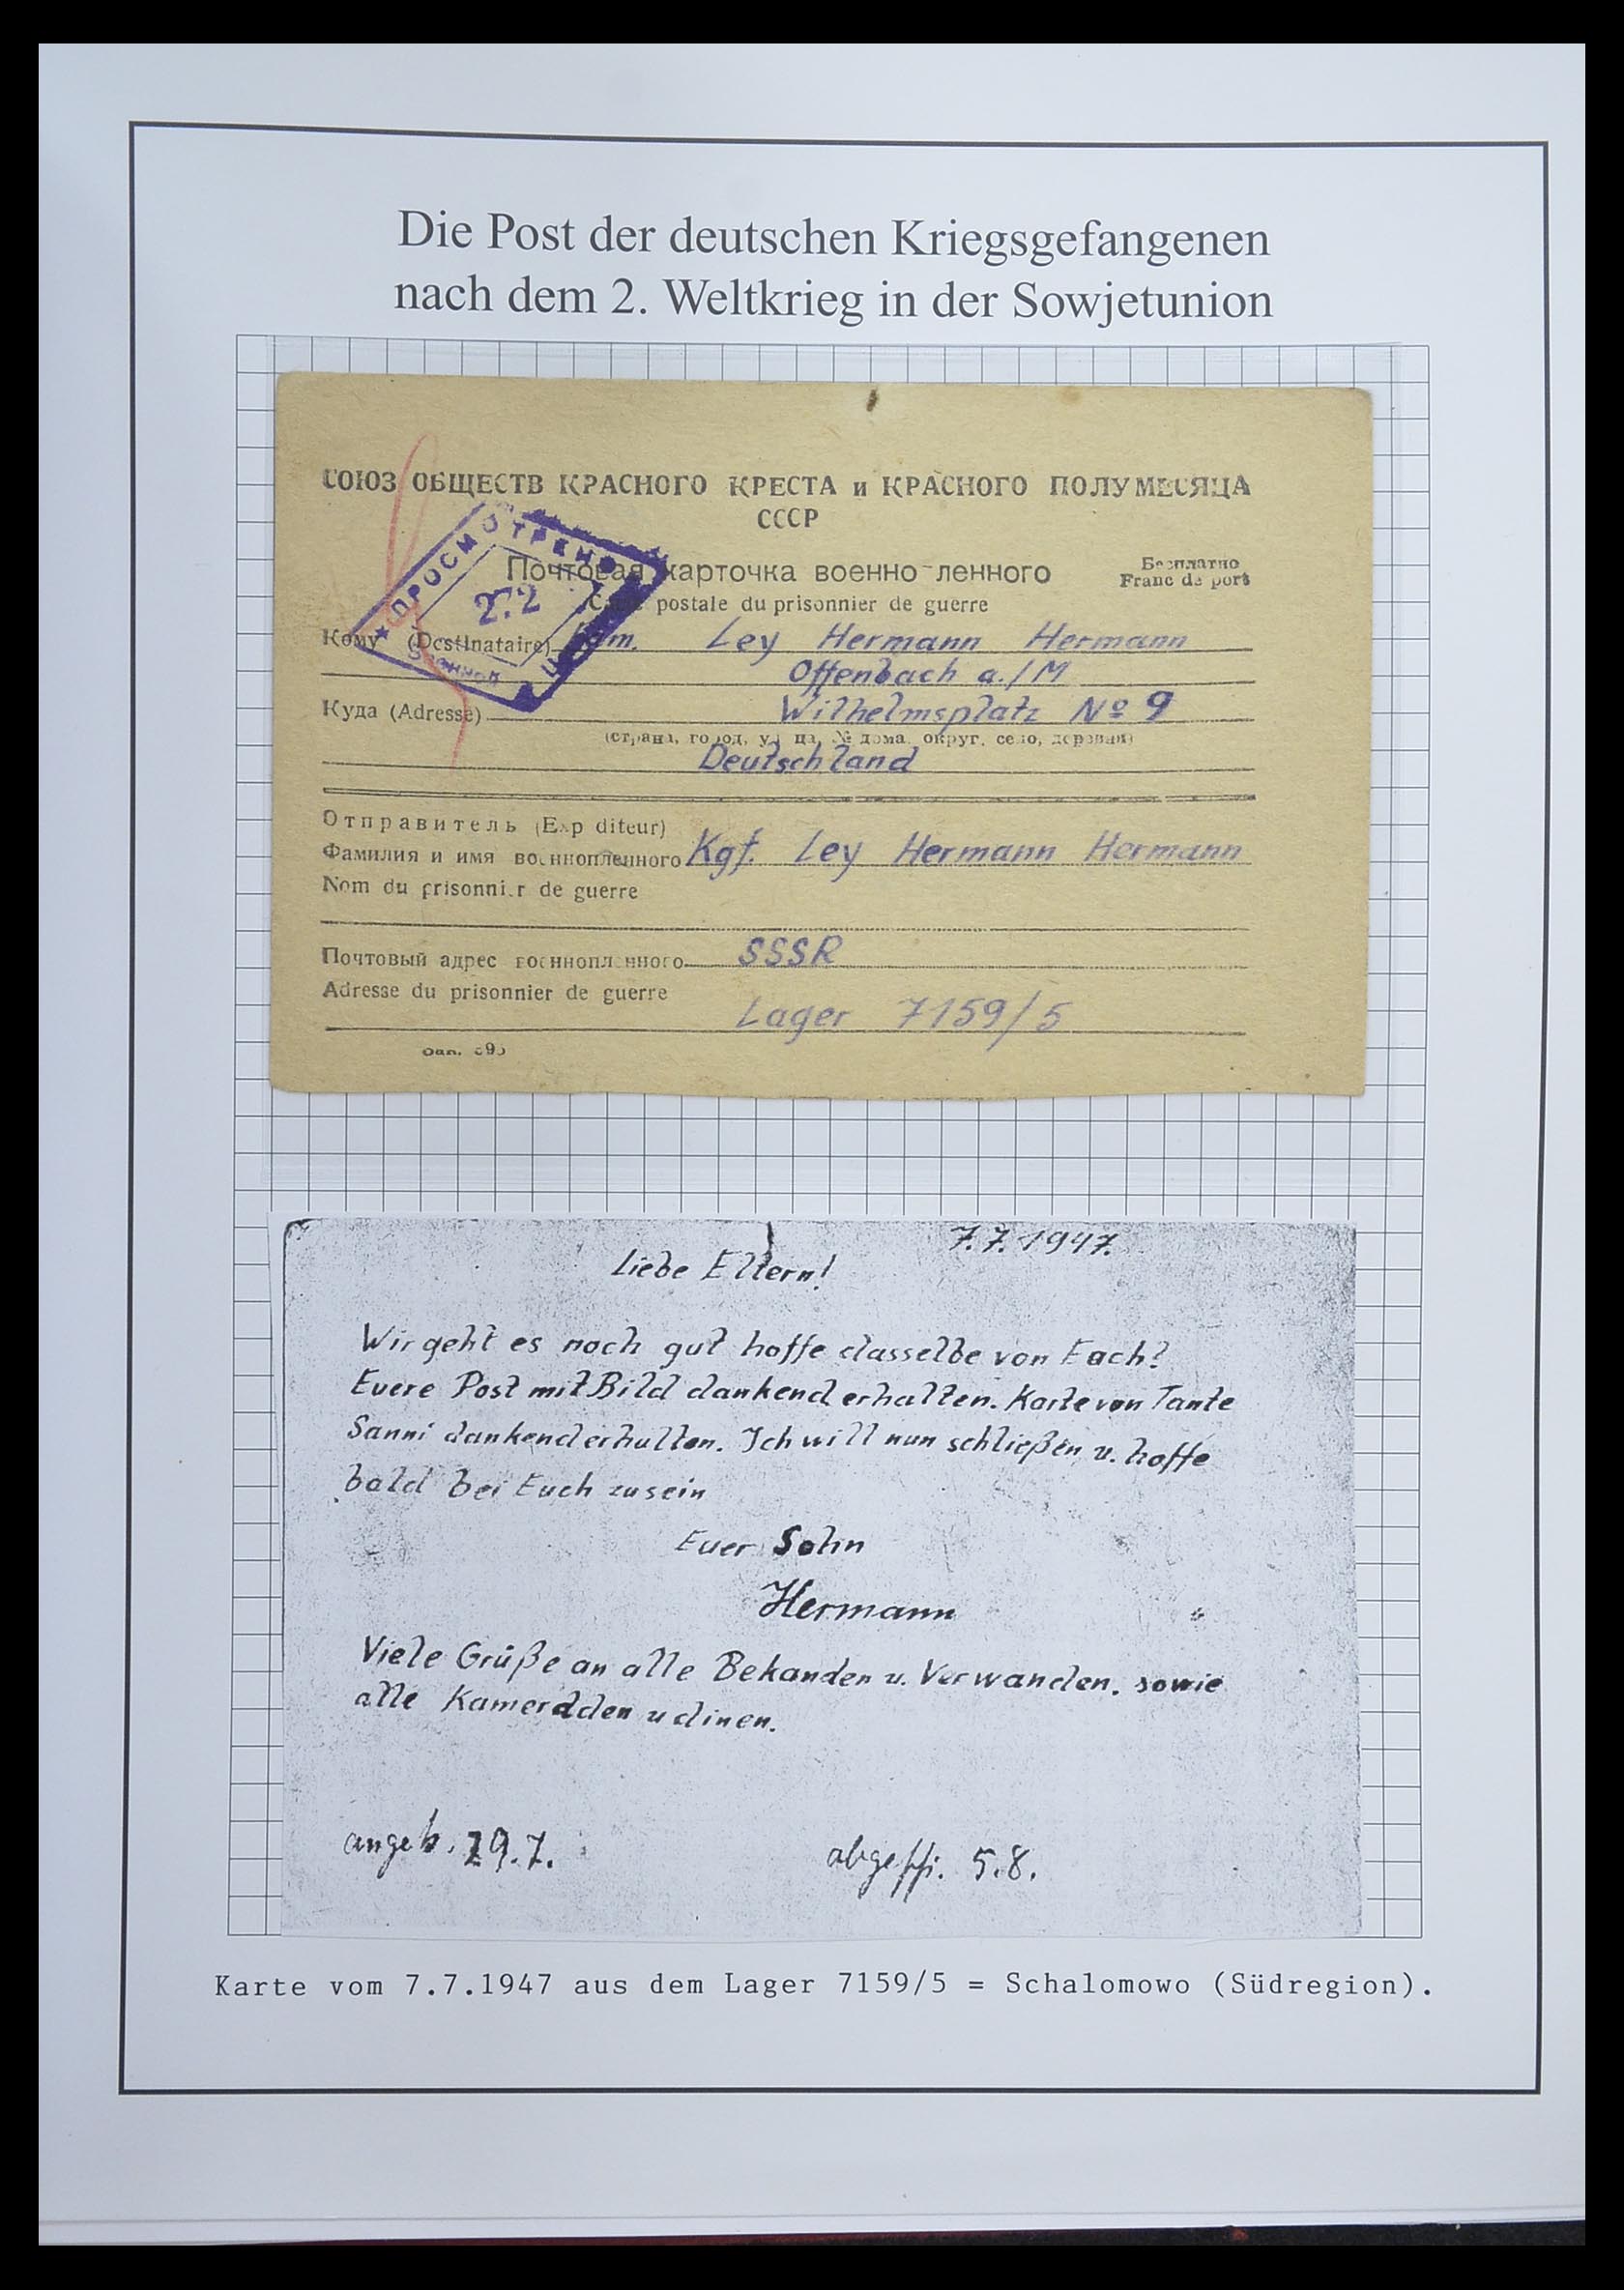 Die Post der deutschen Kriegsgefangenen
nach dem 2. Weltkrieg in der Sowjetunion
СОЮЗ ОБЩЕСТВ КРАСНОГО КРЕСТА и КРАСНОГО ПОЛУМЕСЯЦА
СССР
ПРОСМОТРЕНО
272
Почтовая карточка военно-ленного
Бесплатно
Franc de port
postale du prisonnier de guerre
Кому (Destinataire) Fam. Ley Hermann Hermann
Offenbach a./M
Куда (Adresse) Wilhelmsplatz Nº 9
(страна, город, улица, № дома, округ, село, деревня)
Deutschland
Отправитель (Expéditeur)
Фамилия и имя военнопленного Kgf. Ley Hermann Hermann
Nom du prisonnier de guerre
Почтовый адрес военнопленного SSSR
Adresse du prisonnier de guerre
Lager 7159/5
7.7.1947.
Liebe Eltern!
Wir geht es noch gut hoffe dasselbe von Euch?
Euere Post mit Bild dankend erhalten. Karte von Tante
Sanni dankend erhalten. Ich will nun schließen u. hoffe
bald bei Euch zu sein
Euer Sohn
Hermann
Viele Grüße an alle Bekanden u. Verwanden. sowie
alle Kamerdden u dinen.
angek. 29.7.
5.8.
Karte vom 7.7.1947 aus dem Lager 7159/5 = Schalomowo (Südregion).